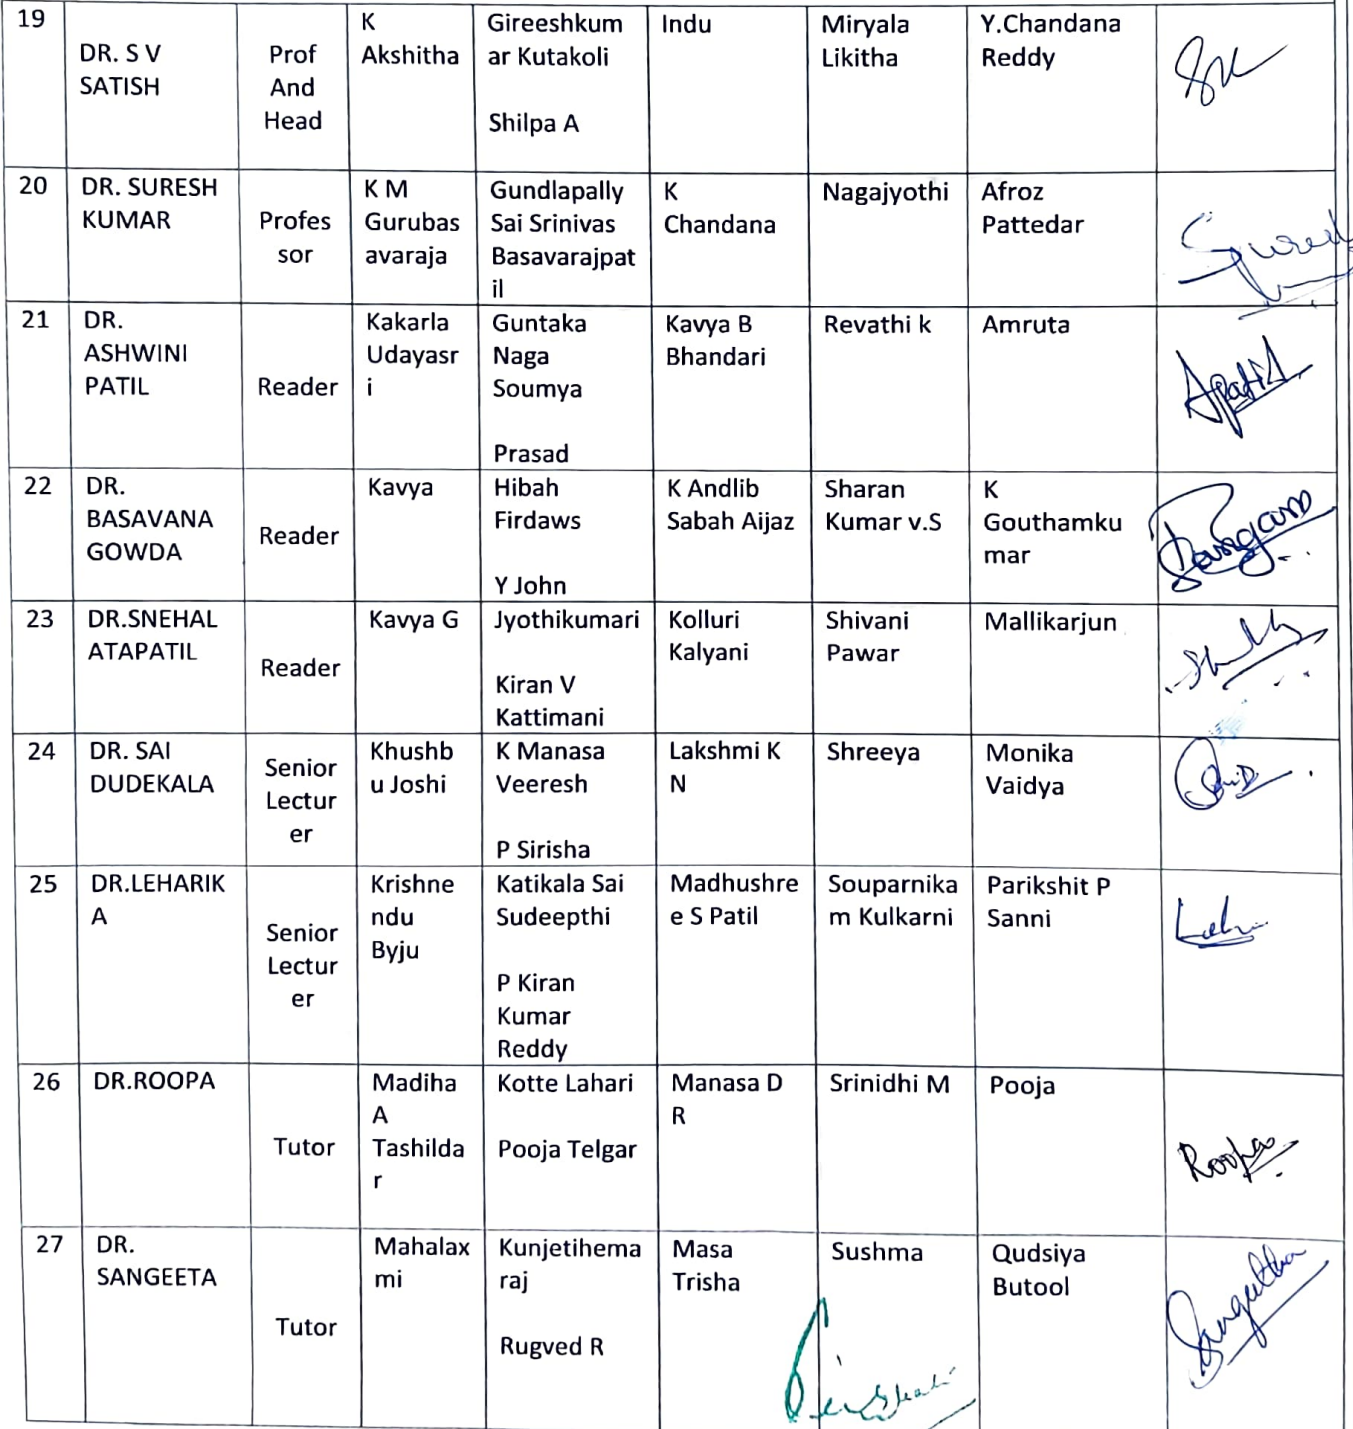 19
DR. S V
SATISH
Prof
And
Head
K
Akshitha
Gireeshkum
ar Kutakoli
Shilpa A
Indu
Miryala
Likitha
Y.Chandana
Reddy
20
DR. SURESH
KUMAR
Profes
sor
K M
Gurubas
avaraja
Gundlapally
Sai Srinivas
Basavarajpat
il
K
Chandana
Nagajyothi
Afroz
Pattedar
21
DR.
ASHWINI
PATIL
Reader
Kakarla
Udayasr
i
Guntaka
Naga
Soumya
Prasad
Kavya B
Bhandari
Revathi k
Amruta
Apatil
22
DR.
BASAVANA
GOWDA
Reader
Kavya
Hibah
Firdaws
Y John
K Andlib
Sabah Aijaz
Sharan
Kumar v.S
K
Gouthamku
mar
23
DR.SNEHAL
ATAPATIL
Reader
Kavya G
Jyothikumari
Kiran V
Kattimani
Kolluri
Kalyani
Shivani
Pawar
Mallikarjun
24
DR. SAI
DUDEKALA
Senior
Lectur
er
Khushb
u Joshi
K Manasa
Veeresh
P Sirisha
Lakshmi K
N
Shreeya
Monika
Vaidya
25
DR.LEHARIK
A
Senior
Lectur
er
Krishne
ndu
Byju
Katikala Sai
Sudeepthi
P Kiran
Kumar
Reddy
Madhushre
e S Patil
Souparnika
m Kulkarni
Parikshit P
Sanni
26
DR.ROOPA
Tutor
Madiha
A
Tashilda
r
Kotte Lahari
Pooja Telgar
Manasa D
R
Srinidhi M
Pooja
Roopa
27
DR.
SANGEETA
Tutor
Mahalax
mi
Kunjetihema
raj
Rugved R
Masa
Trisha
Sushma
Qudsiya
Butool
Sangeetha